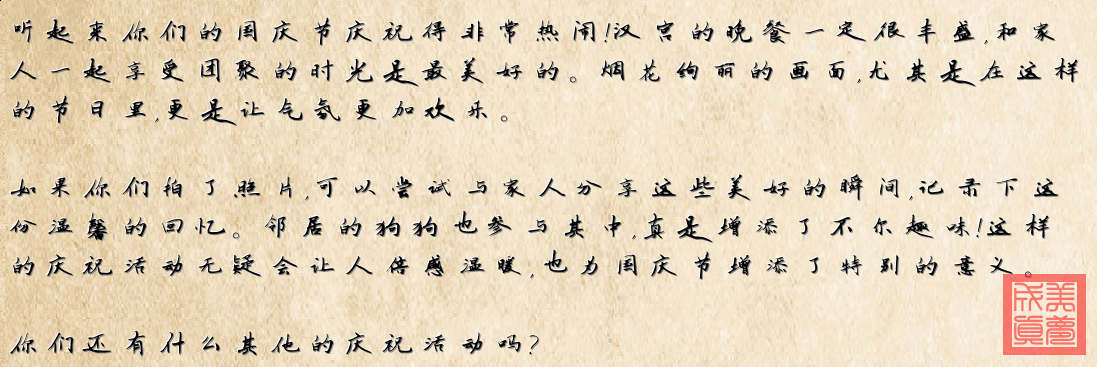 听起来你们的国庆节庆祝得非常热闹!汉宫的晚餐一定很丰盛,和家
人一起享受团聚的时光是最美好的。烟花绚丽的画面,尤其是在这样
的节日里,更是让气氛更加欢乐。
如果你们拍了照片,可以尝试与家人分享这些美好的瞬间,记录下这
份温馨的回忆。邻居的狗狗也参与其中,真是增添了不尔趣味!这样
的庆祝活动无疑会让人倍感温暖,也为国庆节增添了特别的意义。
你们还有什么其他的庆祝活动吗?
美梦成真